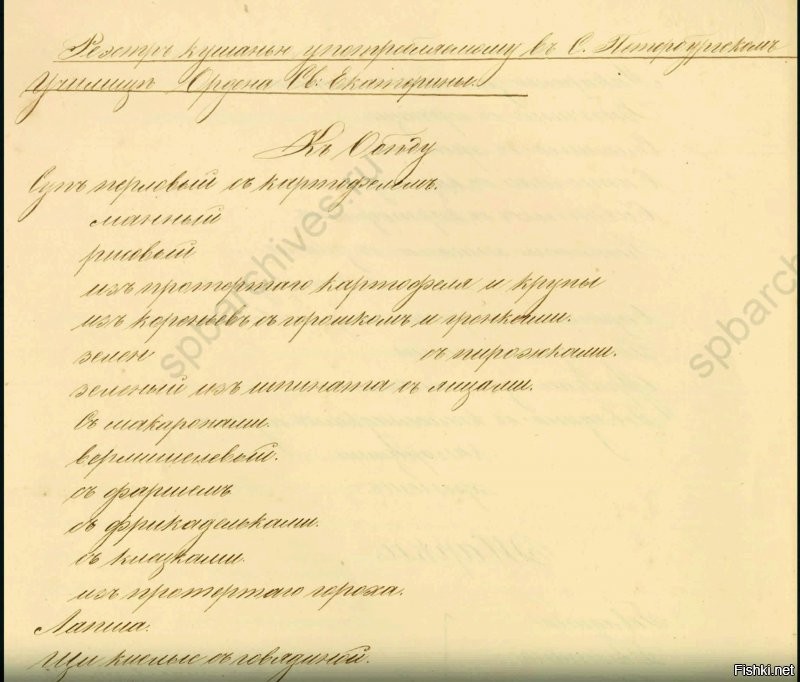 Реэстръ кушанью употребляемому въ С. Петербургскомъ
Училищѣ Ордена Св: Екатерины.
Къ Обѣду
Супъ перловый съ картофелемъ.
манный
рисовый
изъ протертаго картофеля и крупы
изъ кореньевъ съ горошкомъ и гренками.
зелен съ пирожками.
зеленый изъ шпината съ яицами.
съ макаронами.
вермишелевой.
съ фаршемъ
съ фрикадельками.
съ клюзками.
изъ протертаго гороха.
Лапша.
Щи кислые съ говядиной.
spbarchives.ru
spbarch
Fishki.net